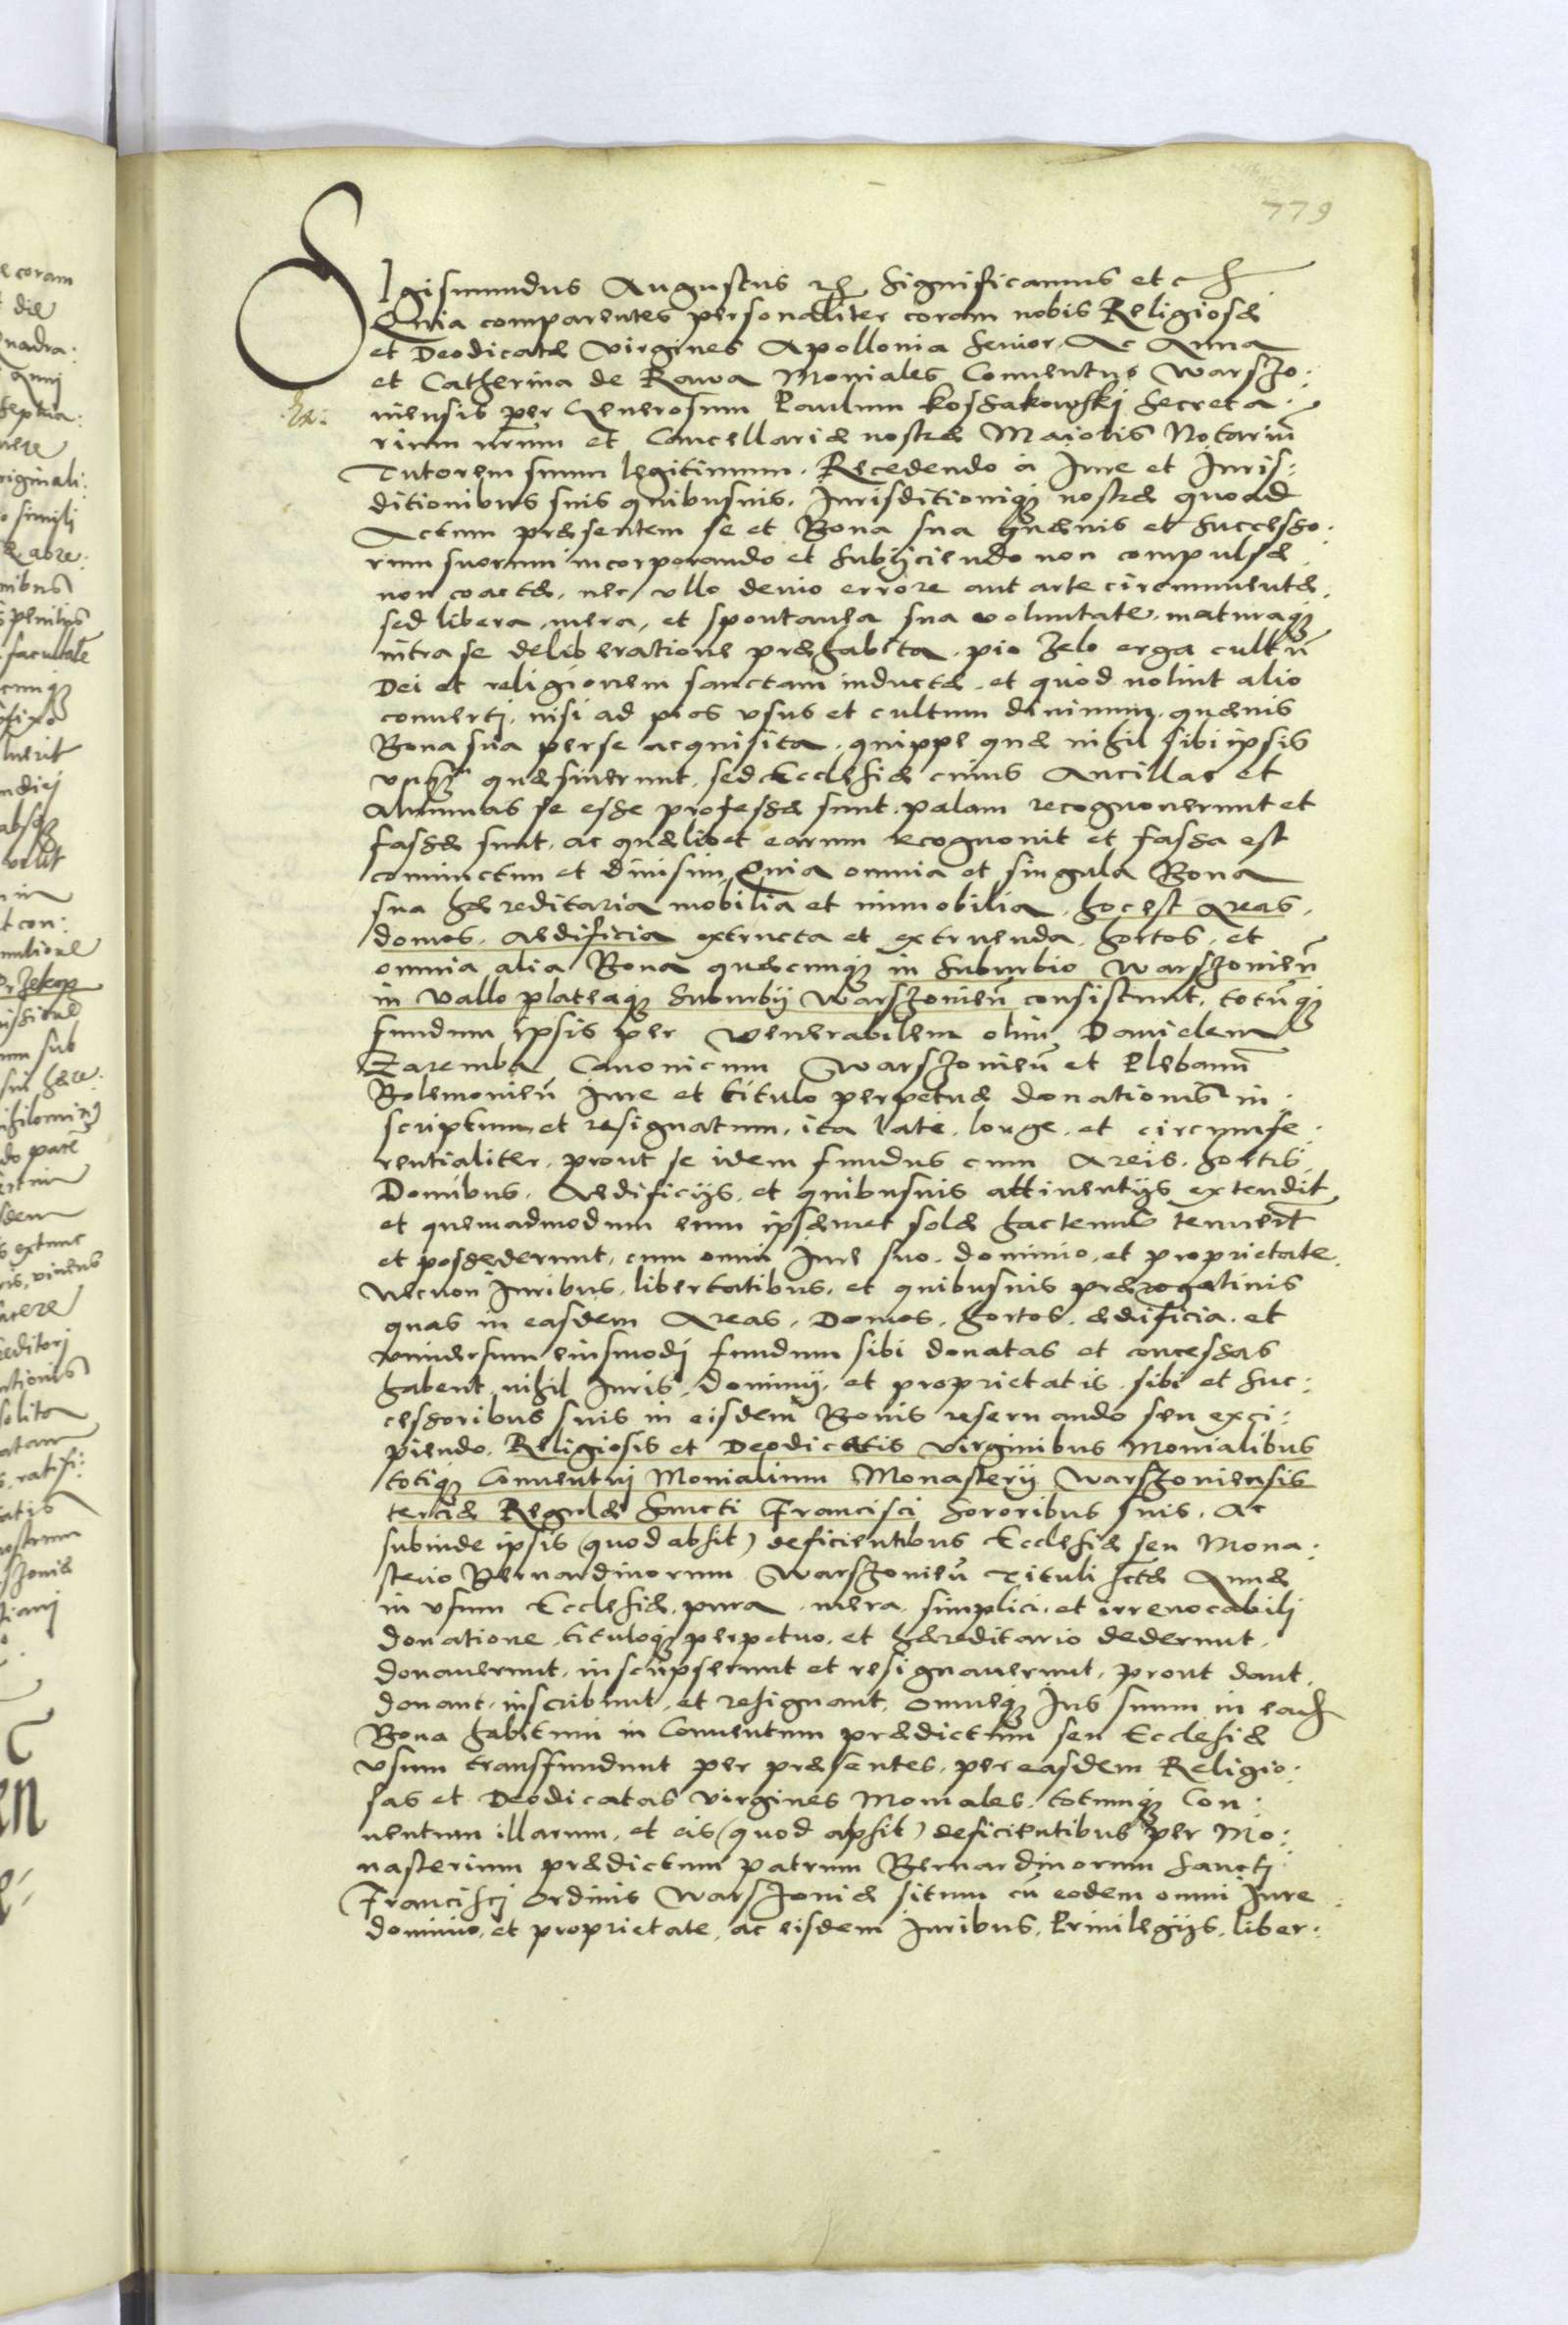 779
SIgismundus Augustus etc. Significamus etc.
Quia comparentes personaliter coram nobis Religiosæ
et Deodicatæ Virgines Apollonia Senior, Ac Anna
et Catherina de Rawa Moniales Conuentus Warszo:
uiensis per Generosum Paulum Kossakowskj Secreta:
rium nrũm et Cancellariæ nostræ Maioris Notariũ
Tutorem suum legitimum. Recedendo à Iure et Iuris:
ditionibus suis quibusuis, Iurisditioniq; nostræ quoad
Actum præsentem se et Bona sua quæuis et Successo:
rum suorum incorporando et subijciendo non compulsæ,
non coactæ, nec vllo deuio errore aut arte circumuentæ,
sed libera, mera, et spontanea sua voluntate, maturaq;
intra se deliberatione præhabita, pio Zelo erga cultũ
Dei et religionem sanctam inductæ, et quod nolint alio
conuertj, nisi ad pios vsus et cultum diuinum, quæuis
Bona sua per se acquisita, quippe quæ nihil sibi ipsis
vnq; quæsiuerunt, sed Ecclesiæ cuius Ancillas et
Alumnas se esse professæ sunt, palam recognouerunt et
fassæ sunt, ac quælibet earum recognouit et fassa est
coniunctim et diuisim, Quia omnia et singula Bona
sua hæreditaria mobilia et immobilia, hoc est Areas,
domos, Aedificia extructa et extruenda, hortos, et
omnia alia Bona quæcunq; in Suburbio Warszouieñ
in Vallo plateaq; Suburbij Warszouieñ consistunt, totũq;
fundum ipsis per Venerabilem olim Danielem
Zaremba Canonicum Warszouieñ et Plebanũ
Bolemouieñ Iure et titulo perpetuæ donationis in:
scriptum et resignatum, ita latè, longè, et circumfe:
rentialiter, prout se idem fundus cum Areis, hortis,
Domibus, Aedificijs, et quibusuis attinentijs extendit,
et quemadmodum eum ipsæmet solæ hactenus tenuerũt
et possederunt, cum omni Iure suo, dominio, et proprietate,
Necnon Iuribus, libertatibus, et quibusuis prærogatiuis
quas in easdem Areas, Domos, hortos, ædificia, et
vniuersum eiusmodj fundum sibi donatas et concessas
habent, nihil Iuris, Dominij, et proprietatis sibi et Suc:
cessoribus suis in eisdem Bonis reseruando seu exci:
piendo, Religiosis et Deodicatis Virginibus Monialibus
totiq; Conuentuj Monialium Monasterij Warszouiensis
tertiæ Regulæ Sancti Francisci Sororibus suis, Ac
subinde ipsis (quod absit) deficientibus Ecclesiæ seu Mona:
sterio Bernardinorum Warszouieñ Tituli Sctæ Annæ
in vsum Ecclesiæ, pura, mera, simplici, et irreuocabilj
donatione, tituloq; perpetuo, et hæreditario dederunt,
donauerunt, inscripserunt et resignauerunt, prout dant,
donant, inscribunt, et resignant, Omneq; Ius suum in ead
Bona habitum in Conuentum prædictum seu Ecclesiæ
vsum transfundunt per præsentes, per easdem Religio:
sas et Deodicatas Virgines Moniales, totumq; Con:
uentum illarum, et eis (quod absit) deficientibus per Mo:
nasterium prædictum patrum Bernardinorum Sanctj
Francisci Ordinis Warszouiæ situm cũ eodem omni Iure
dominio, et proprietate, ac eisdem Iuribus, Priuilegijs, liber: